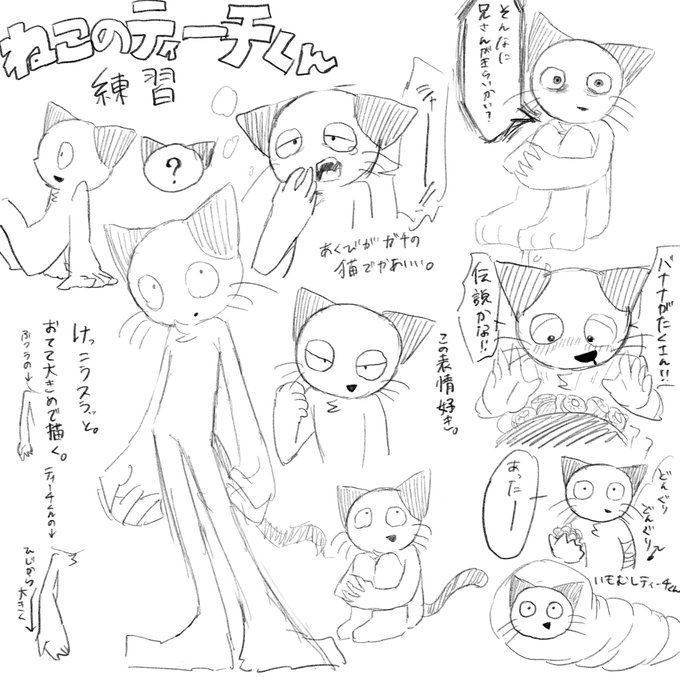 ねこのティーチくん
練習
そんなに
兄さんがきらいかい?
?
あくびがガチの
猫でかあいい。
バナナがたくさん!!
伝説かな!!
けっこうスラッと。
おてて大きめで描く。
ふつうの→
ティーチくんの→
ひじから大きく
この表情好き。
あったー
どんぐり
どんぐり♪
いもむしティーチくん